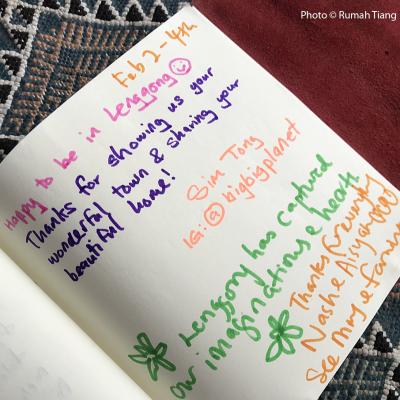 Photo © Rumah Tiang
Feb 2 - 4th
Happy to be in Lenggong
Thanks for showing us your
wonderful town & sharing your
beautiful home!
Sim Tong
IG: @bigbigplanet
Lenggong has captured
our imaginations & hearts
Thanks
Nashe Aisyah
See May &